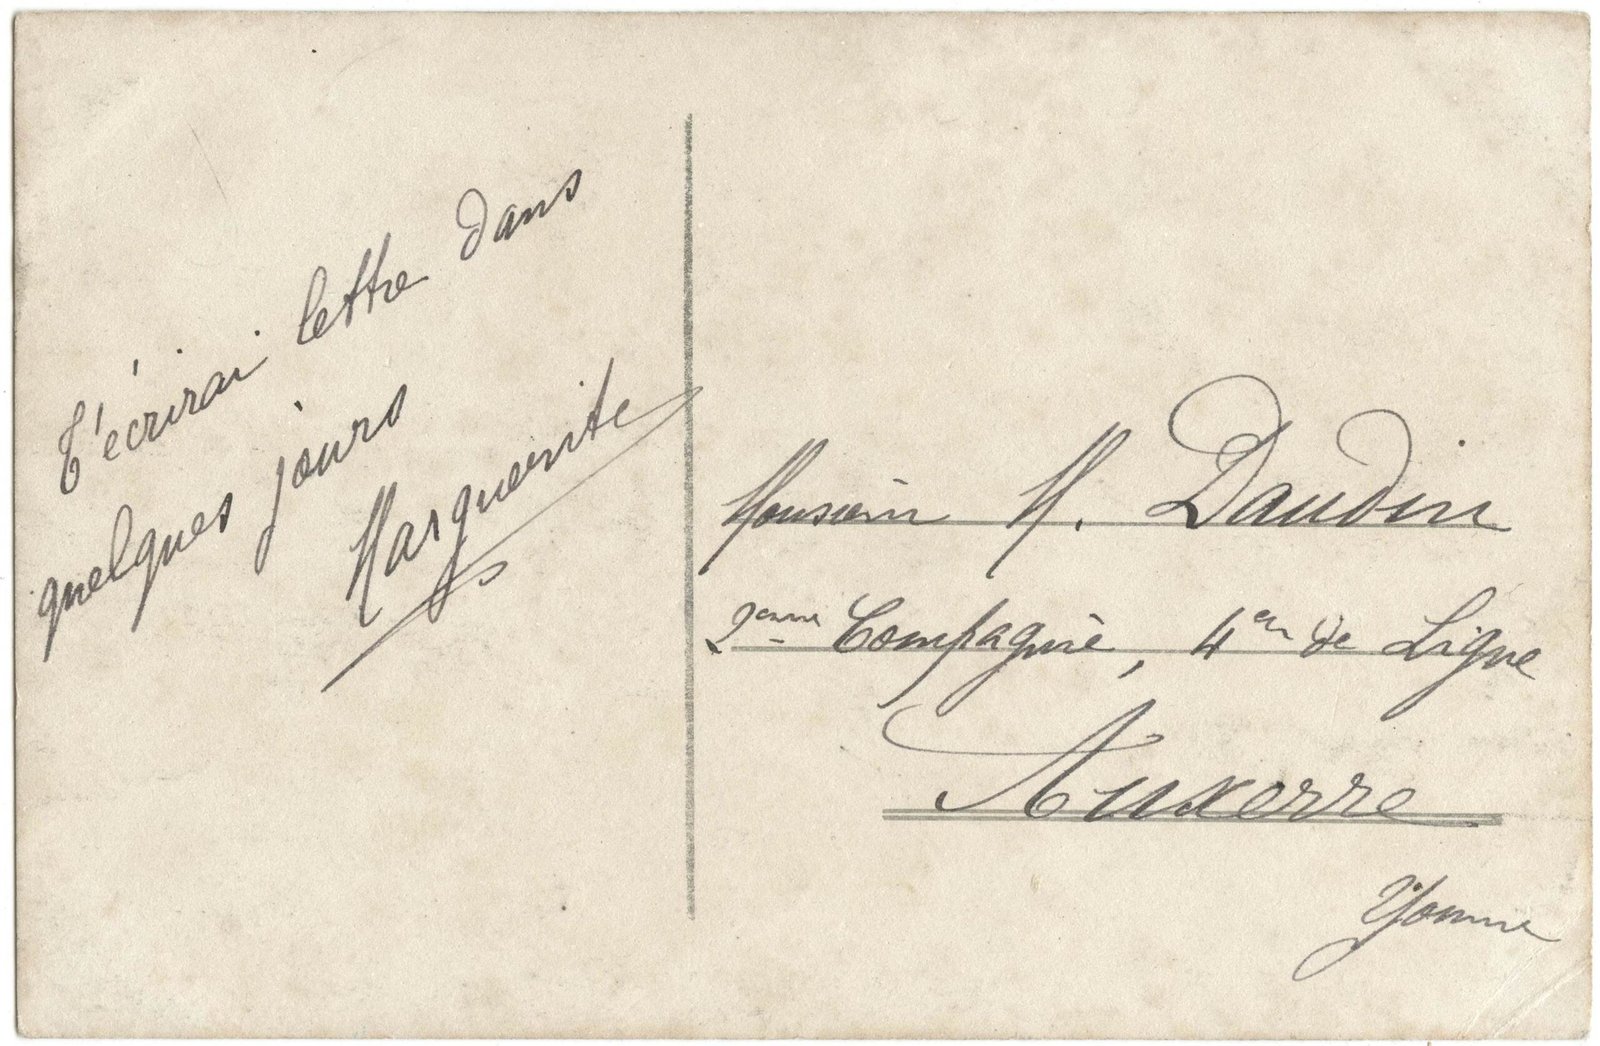 T'écrirai lettre dans
quelques jours
Marguerite
Monsieur M. Daudin
2eme Compagnie, 4e de Ligne
Auxerre
Yonne